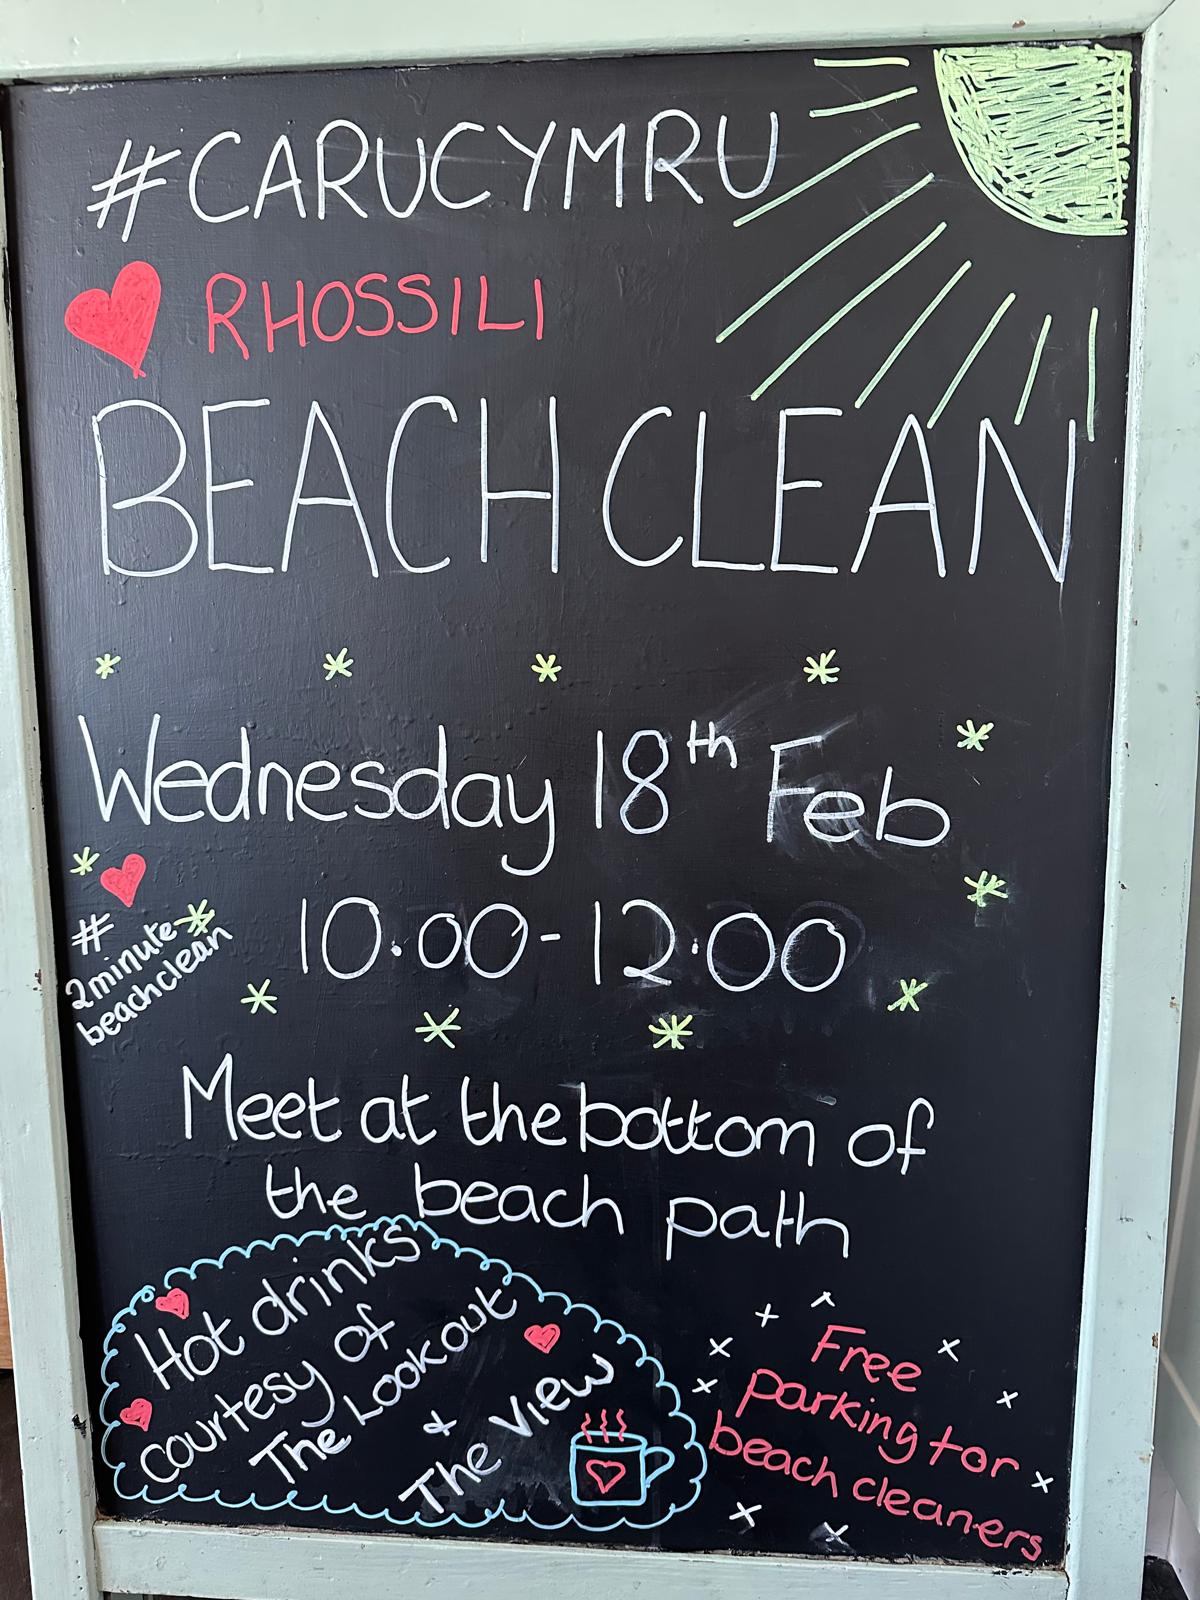 #CARUCYMRU
RHOSSILI
BEACH CLEAN
Wednesday 18th Feb
10.00-12.00
#
2minute
beachclean
Meet at the bottom of
the beach path
Hot drinks
courtesy of
The Lookout
&
The View
Free
parking for
beach cleaners